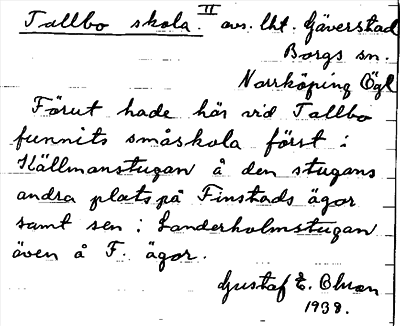 Tallbo skola. II avs. lht. Gäverstad
Borgs sn.
Norrköping Ögl
Förut hade här vid Tallbo
funnits småskola först i
Källmanstugan å den stugans
andra plats på Finstads ägor
samt sen i Sanderholmstugan
även å F. ägor.
Gustaf E. Olson
1938.